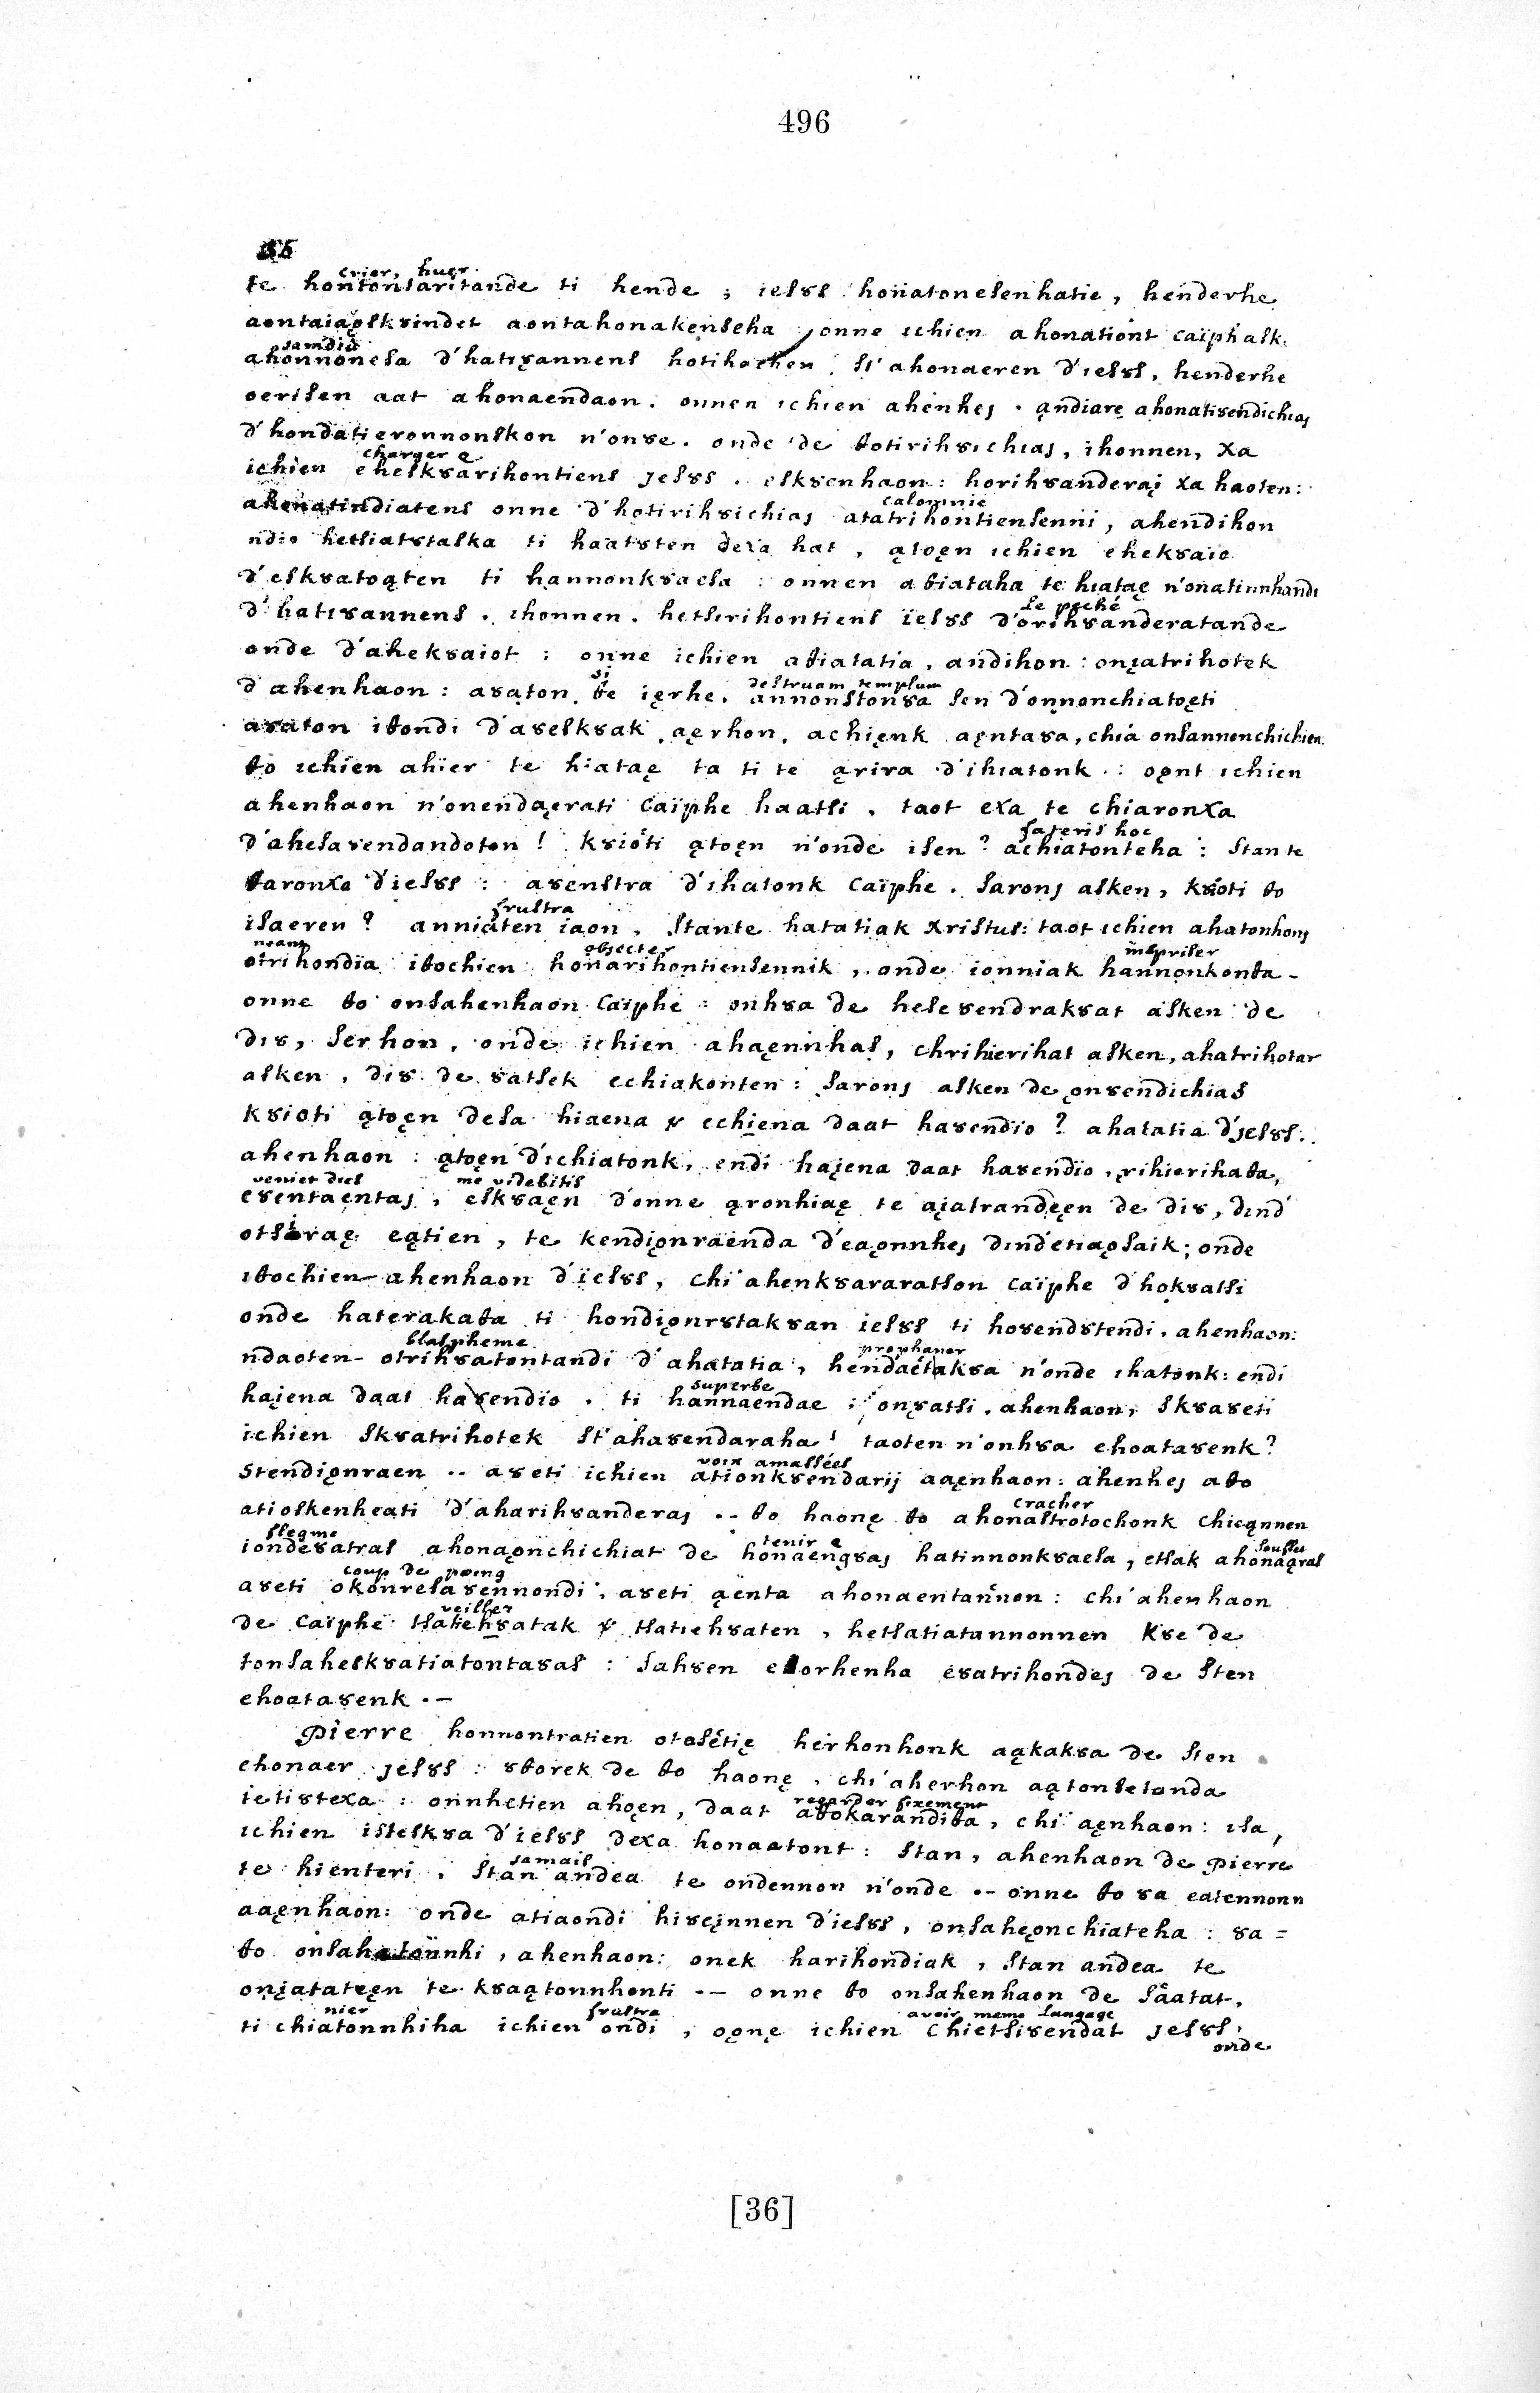 496
te hontonsaritande ti hende ; iesȣs honatonesenhatie, henderhe
crier, huer.
aontaiaęskȣindet aontahonakenseha , onne ichien ahonationt caïphask.
jamdiù
ahonnonesa d'hatiȣannens hotihochen . st'ahonaeren d'iesȣs. henderhe
oerisen aat ahonaendaon. onnen ichien ahenhej . ąndiarę ahonatiȣendichiaj
d'hondatieronnonskon n'onȣe. onde de ȣotirihȣichiaj, ihonnen, xa
charger ę
ichien eheskȣarihontiens jesȣs . eskȣenhaon : horihȣanderaį xa haoten :
calomnie
onne d'hotirihȣichiaj atatrihontiensenni, ahendihon
ndio hetsiatȣtaska ti haatȣten dexa hat , ątoęn ichien ehekȣaio
d'eskȣatoąten ti hannonkȣaesa : onnen aȣiataha te hiataę n'onatinnhandi
le peché
d'hatiȣannens . ihonnen. hetsirihontiens ïesȣs d'orihȣanderatande
onde d'ahekȣaiot : onne ichien aȣiatatia, andihon : onįatrihotek
si destruam templum
d'ahenhaon : aȣaton, ȣe ięrhe. annonstonȣa sen d'onnonchiatoęti
aȣaton iȣondi d'aȣeskȣak . aęrhon. achięnk aęntaȣa, chia onsannonchichien
ȣo ichien ahïer te hiataę ta ti te ąriȣa d'ihiatonk : oęnt ichien
ahenhaon n'onendaęrati Caïphe haatsi . taot exa te chiaronxa
fateris hoc
d'ahesaȣendandoton ! kȣioti ątoęn n'onde isen ? achiatonteha : stante
ȣaronxa d'iesȣs : aȣenstra d'ihatonk Caïphe . saronj asken, kȣioti ȣo
frustra
isaeren ? anniaten iaon , stante hatatiak xristus : taot ichien ahatonhonj
neant objecter mépriser
otrihondïa iȣochien honarihontiensennik , onde ionniak hannonkonȣa -
onne ȣo onsahenhaon Caïphe : onhȣa de heseȣendrakȣat asken de
diȣ, serhon, onde ichien ahaęnnhas, chrihierihat asken, ahatrihotar
asken, diȣ de ȣatsek echiakonten : saronj asken de ǫnȣendichias
kȣioti ątoęn desa hiaena & echiena daat haȣendio ? ahatatia d'jesȣs.
ahenhaon : ątoęn d'ichiatonk, endi hajena daat haȣendïo, rihierihaȣa,
veniet dies me videbitis
eȣentaentaj, eskȣaęn d'onne ąronhiaę te aįatrandęęn de diȣ, dind'
eątien, te kendiǫnraenda d'eaǫnnhej dind'etiaǫsaik ; onde
iȣochien ahenhaon d'ïesȣs, chi'ahenkȣararatson Caïphe d'hokȣatsi
onde haterakaȣa ti hondiǫnrȣtakȣan iesȣs ti hoȣendȣtendi. ahenhaon :
blaspheme prophaner
ndaoten otrihȣatontandi d'ahatatia, hendaetakȣa n'onde ihatonk : endi
superbe
hajena daat haȣendïo . ti hannaendae : onȣatsi. ahenhaon, skȣaȣeti
ichien skȣatrihotek st'ahaȣendaraha ! taoten n'onhȣa ehoataȣenk ?
voix amassées
stendiǫnraen .. aȣeti ichien ationkȣendarij aąęnhaon : ahenhej aȣo
cracher
atioskenheati d'aharihȣanderaj .- ȣo haonę ȣo ahonastrotochonk chieąnnen
flegme tenir ę soufflet
iondeȣatras ahonaǫnchichiat de honaenąȣaj hatinnonkȣaesa, etsak ahonaąras
coup de poing
aȣeti okonresaȣennondi . aȣeti ąenta ahonaentannon : chi'ahenhaon
veiller
de Caïphe tsatiehȣatak & tsatiehȣaten, hetsatiatannonnen kȣe de
tonsaheskȣatiatontaȣas : sahȣen etsorhenha eȣatrihondej de sten
ehoataȣenk .-
Pierre honnontratien otasetię herhonhonk aąkakȣa de sten
ehonaer jesȣs : ȣȣorek de ȣo haonę, chi'aherhon aątonsetanda
regarder fixement
ietiȣtexa : onnhetien ahoęn, daat aȣokarandiȣa, chi aęnhaon : isa,
ichien isteskȣa d'iesȣs dexa honaatont : stan, ahenhaon de pierre
jamais
te hienteri . stan andea te ondennon n'onde .- onne ȣo ȣa eatennonn
aąęnhaon : onde atiaondi hiȣeįnnen d'iesȣs, onsahęǫnchiateha : ȣa=
ȣo , ahenhaon : onek harihondiak, stan andea te
onįatatęęn te kȣaątonnhonti .- onne ȣo onsahenhaon de saatat,
nier frustra avoir meme langage
ti chiatonnhiha ichien ondi , oǫnę ichien chietsiȣendat jesȣs,
onde
[36]